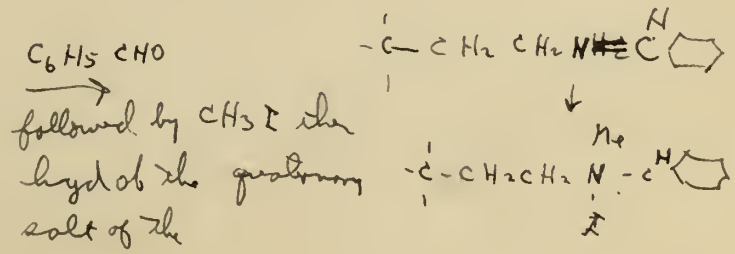 C6H5 CHO
followed by CH3I then
hyd of the quaternary
salt of the
-C- CH2 CH2 N=CH
Me
-C- CH2CH2 N - CH
I